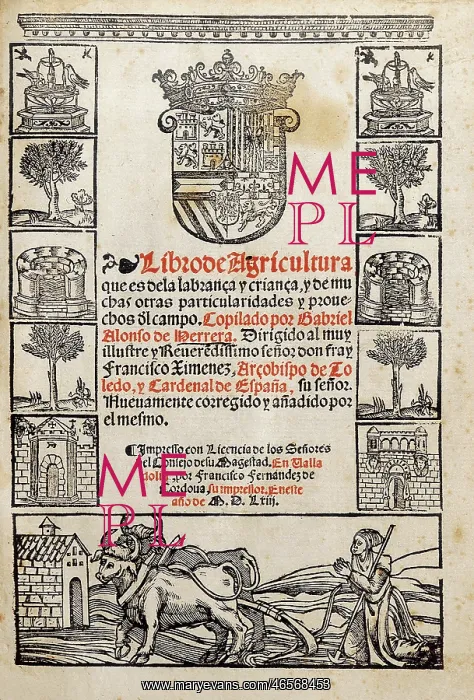 Libro de Agricultura
que es dela labrança y criança, y de mu
chas otras particularidades y proue-
chos dl campo. Copilado por Gabriel
Alonso de Herrera. Dirigido al muy
illustre y Reuerẽdissimo señor don fray
Francisco Ximenez, Arçobispo de To
ledo, y Cardenal de España, su señor.
Nueuamente corregido y añadido por
el mesmo.
¶ Impresso con Licencia de los Señores
del Consejo de su Magestad. En Valla
por Francisco Fernandez de
Cordoua su impressor. En este
año de M. D. Lxiij.
ME
PL
ME
PL
www.maryevans.com/46568458